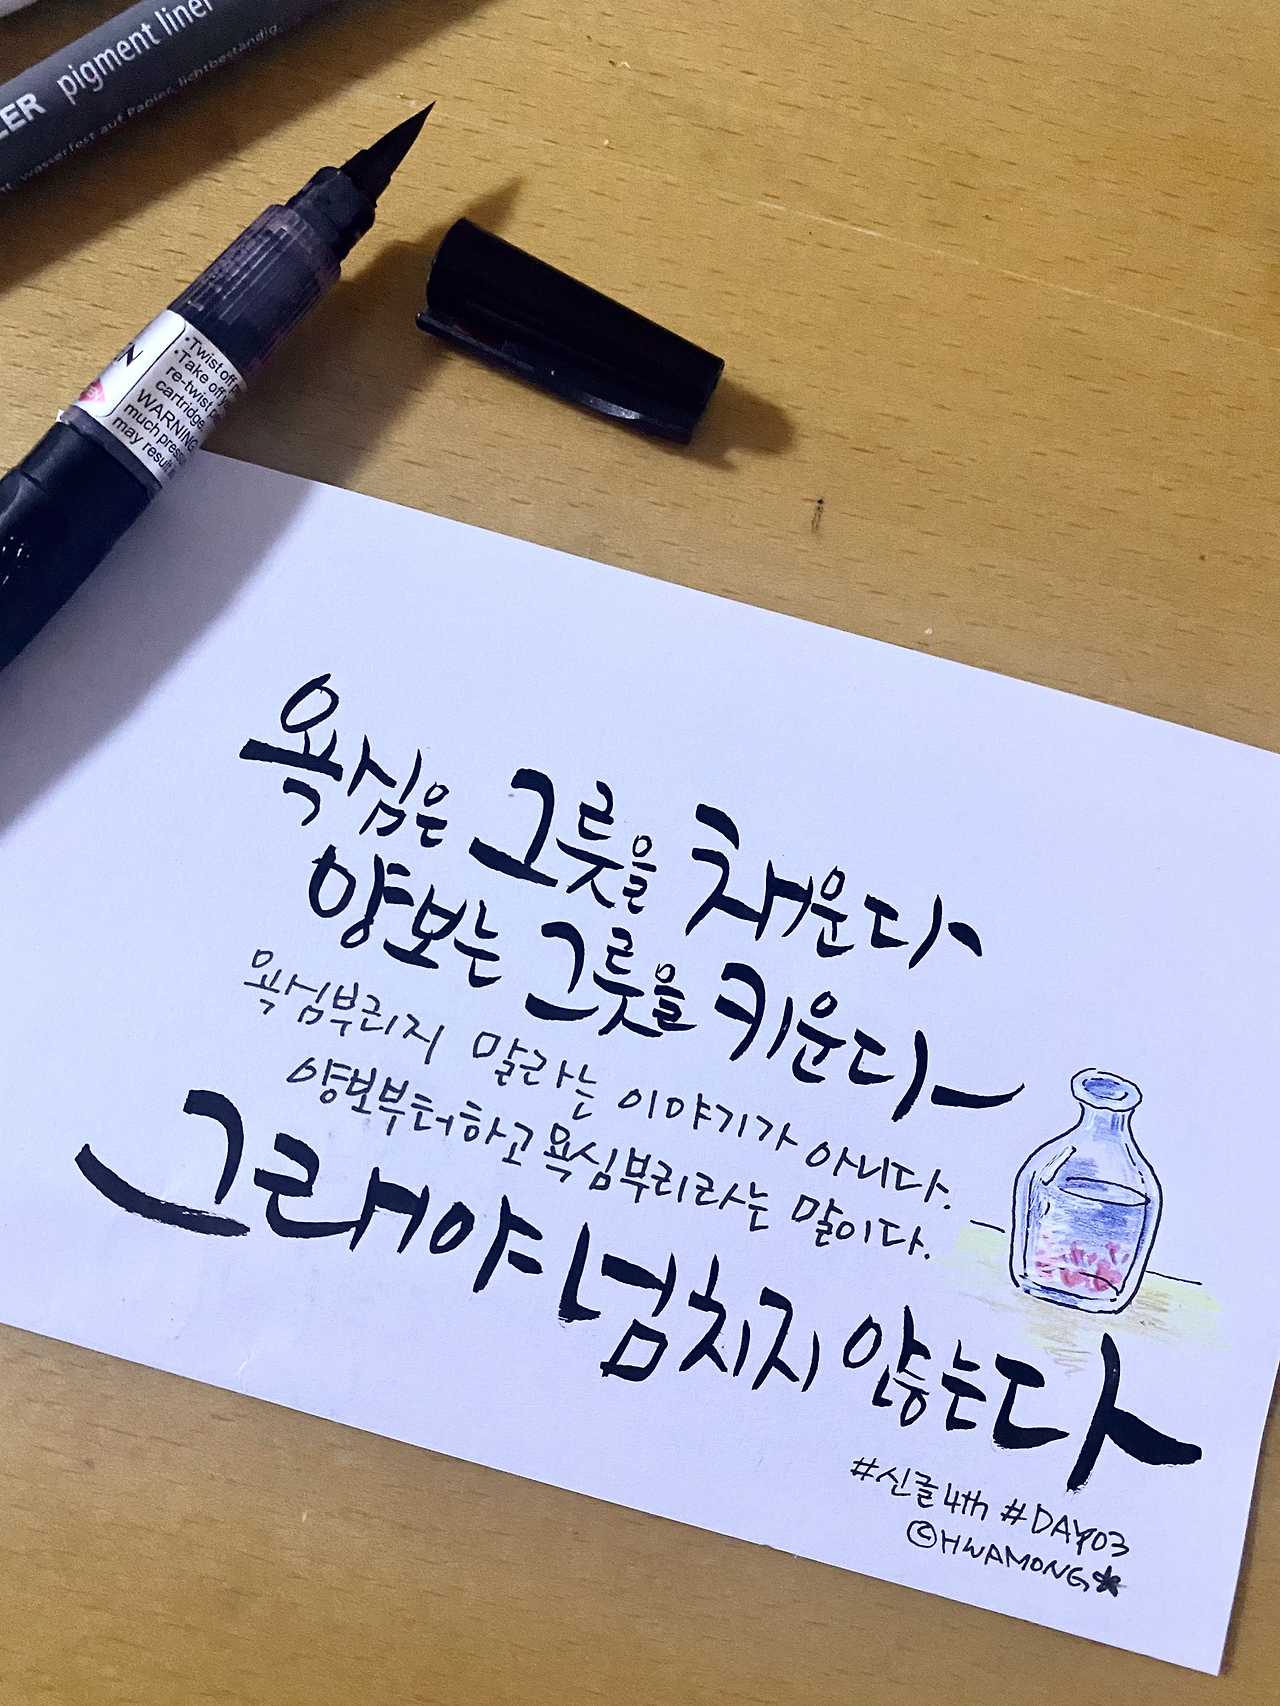 pigment liner
wasserfest auf Papier, lichtbeständig.
•Twist off
•Take off
re-twist
cartridge
WARNING
much
may result
욕심은 그릇을 채운다
양보는 그릇을 키운다
욕심부리지 말라는 이야기가 아니다.
양보부터하고 욕심부리라는 말이다.
그래야 넘치지 않는다
#신글4th #DAY03
©HWAMONG